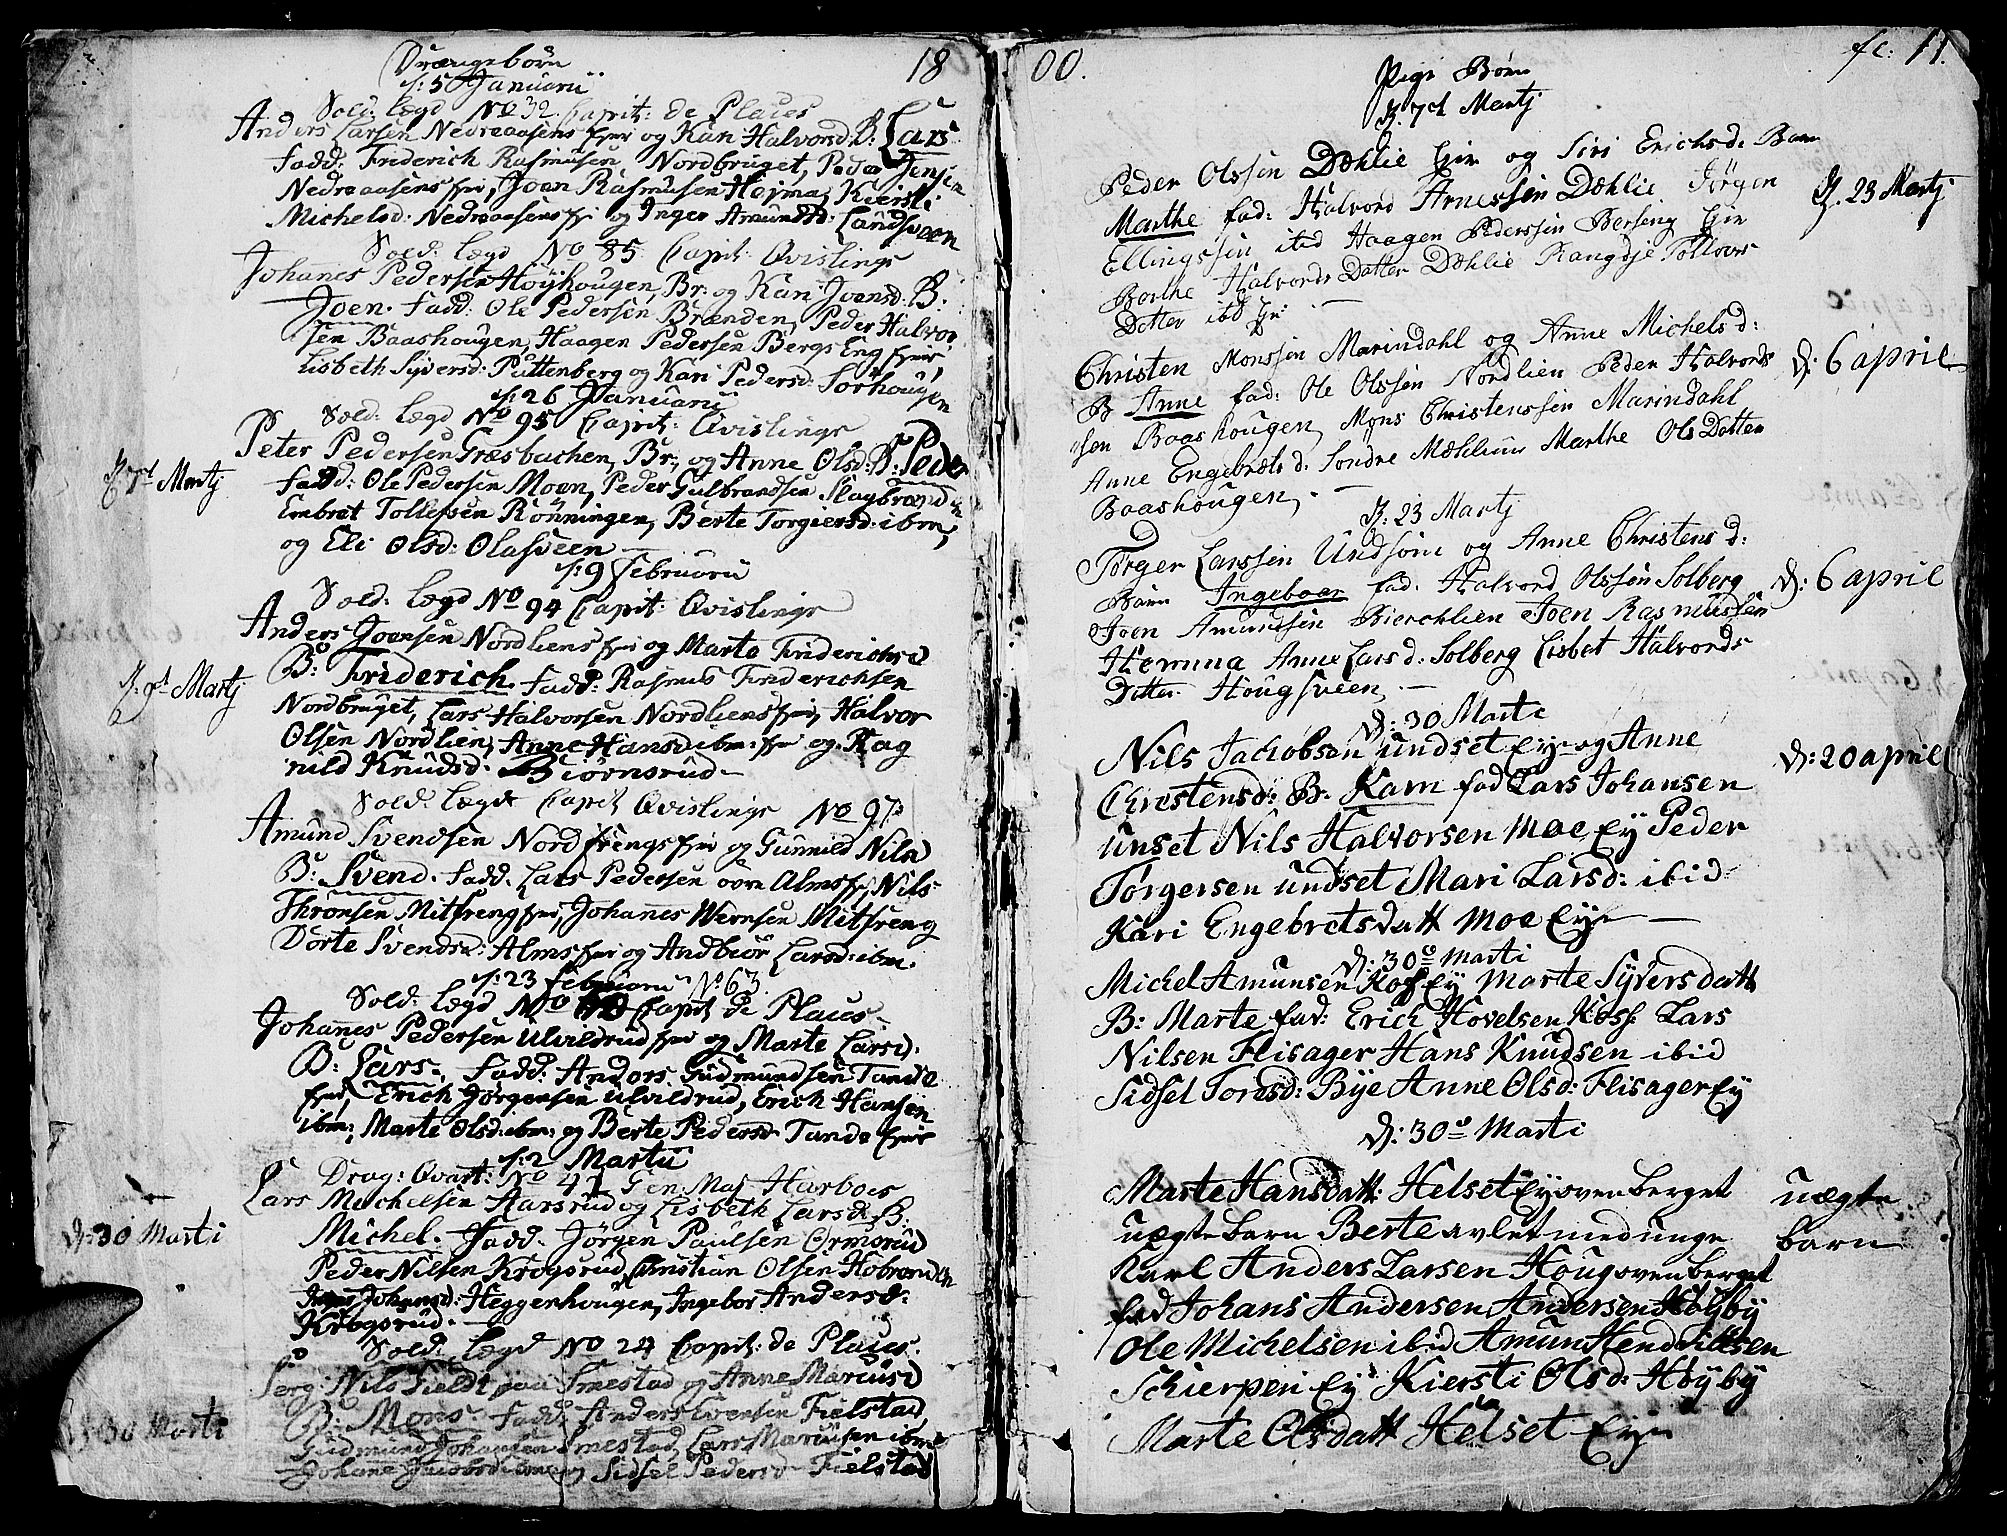 Drængebörn 18
d: 5 Januarii
Sold. lægd No 32. Capit: de Plaues
Anders Larsen Nedreaasens Eyer og Kari Halvorsd: B: Lars
Fadd: Friderich Rasmusen Nordbruget, Peder Jensen
Nedreaasens Eyer, Joen Rasmusen Hojma, Kiersti
Michelsd: Nedreaasens Eyer og Inger Amundsd: Landsveen
Sold: lægd No 85 Capit: Qvislings
Johanes Pedersen Höyhougen, Br: og Kari Joensd: B:
Joen. Fadd: Ole Pedersen Brænden, Peder Halvor
sen Baashougen, Haagen Pedersen Bergs Eng Eyer,
Lisbeth Syversd: Puttenberg og Kari Pedersd: Sörhougen
d: 26 Januarii
Sold: lægd No 95 Capit: Qvislings
Peter Pedersen Græsbachen, Br:, og Anne Olsd: B: Peder
d: 7d Martj
Fadd: Ole Pedersen Moen, Peder Gulbrandsen Slagbrænden
Embret Tollefsen Rönningen, Berte Torgiersd: ibm,
og Eli Olsd: Olasveen
d: 9 Februarii
Sold: lægd No 94 Capit: Qvislings
Anders Joensen Nordliens Eyer og Marte Friderichsd
d: 9d Martj
B: Friderich. Fadd: Rasmus Friderichsen
Nordbruget, Lars Halvorsen Nordliens Eyer, Halvor
Olsen Nordlien, Anne Hansd: ibm: Eyer og Rag
nild Knudsd. Biörnsrud
Sold: Lægd Capit Qvislings No 97
Amund Svendsen Nordstrengs Eyer og Gunnild Nilsd
B: Svend. Fadd. Lars Pedersen Alms Eyer Nils
Thronsen Mitstreng Eyer, Johannes Mitstreng
Dorte Svendsd: Alms Eyer og Andbior Larsd: ibm.
d: 23 Februarii No 63
Sold: lægd No Capit de Plaus
Johannes Pedersen Ulvildrud Eyer og Marte Larsd.
B: Lars. Fadd: Anders Gudmundsen Tande
Eyer, Erich Jörgensen Ulvildrud, Erich Hansen
ibm; Marte Olsd: ibm: og Berte Pedersd Tande Eyer
d: 2 Martii
Drag: Qvart: No 41 Gen: Maj Harboes
Lars Michelsen Aarsrud og Lisbeth Larsd: B:
d: 30 Marti
Michel. Fadd: Jörgen Paulsen Ormsrud
Peder Nilsen Krogsrud, Christian Olsen Hobrænden
Johansd: Heggenhougen, Ingebor Andersd:
Krogsrud.
Sold: Lægd No 24 Capit: de Plaues.
Serg: Nils Fieldt paa Smestad og Anne Mariusd
d: 30 Marti
B: Mons. Fadd: Anders Evensen Fielstad
Gudmund Johansen Smestad, Lars Mariusen ibm
Johane Jacobsd: ibm og Sidsel Pedersd Fielstad
00. fc: 11.
Pige Børn
d. 7d Martj
Peder Olssen Dæhlie Eier og Siri Erichsd: Barn
d. 23 Martj
Marthe fad: Halvord Arnessen Dæhlie Jörgen
Ellingssen ibd Haagen Pederssen Berseng Eier
Barthe Halvords Datter Dæhlie Rangdje Tollovs
Datter ibd Ei:
Christen Monssen Marindahl og Anne Michelsd:
d: 6 april
B Anne fad: Ole Olssen Nordlien Peder Halvords
sen Baashougen, Mons Christenssen Marindahl
Anne Engebretsd: Söndre Mæhlum Marthe Ols Datter
Baashougen,
d: 23 Martj
Torger Larssen Undsom og Anne Christensd:
d: 6 april
Barn Ingeboer fad. Halvord Olssen Solberg
Joen Amundsen Bierchlien Joen Rasmussen
Hemma Anne Larsd: Solberg Lisbet Halvords
Datter Hougsveen,
d: 30 Marti
Nils Jachobsen undset Eye og Anne
d: 20 april
Christensd: B. Karn fad Lars Johansen
unset Nils Halvorsen Moe Ey Peder
Törgersen undset Mari Larsd: ibid
Kari Engebretsdatt Moe Eye
d: 30 Marti
Michel Amunsen Kos Ey Marte Syversdatt
B: Marte fad: Erich Hovelsen Koss Lars
Nilsen Flisager Hans Knudsen ibid
Sidsel Toresd: Bye Anne Olsd: Flisager Ey
d: 30 Marti
Marte Hansdatt: Helset Ey ovenberget uægte
uægte barn Berte avlet med unge barn
Karl Anders Larsen Houg ovenberget
fad Johans Andersen Andersen Höyby
Ole Michelsen ibid Amun Hendricksen
Schierpen Ey Kiersti Olsd: Höyby
Marte Olsdatt Helset Eye